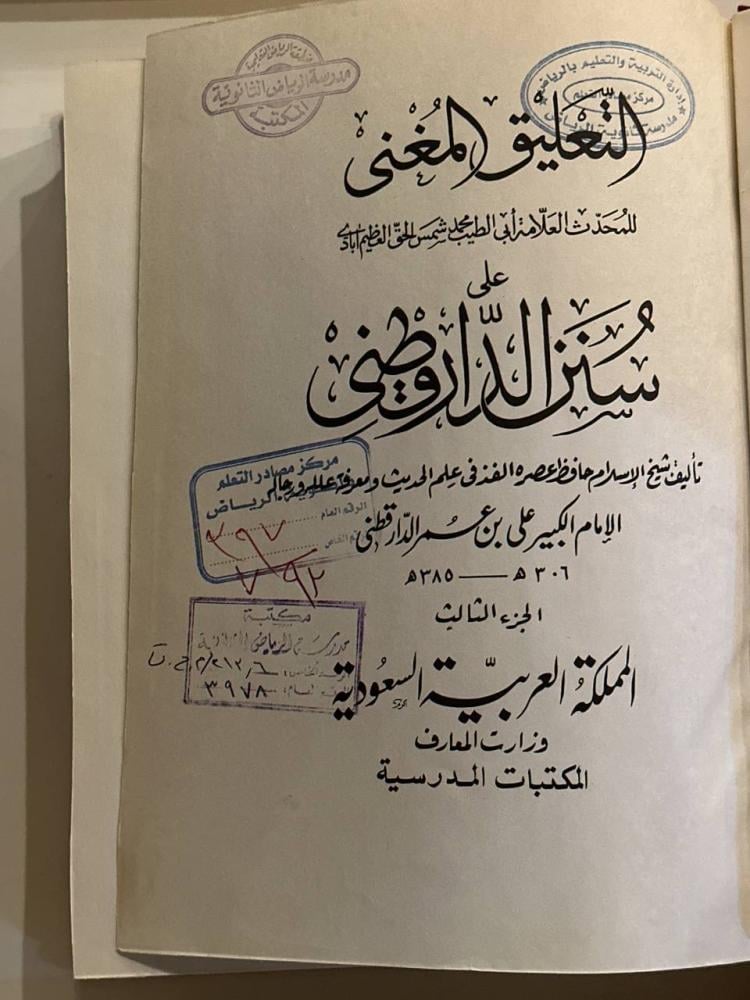 منطقة الرياض التعليمية
مدرسة الرياض الثانوية
المكتبة
إدارة التربية والتعليم بالرياض
مركز مصادر التعلم
مدرسة ثانوية الرياض
التعليق المغني
للمحدث العلامة أبي الطيب محمد شمس الحق العظيم آبادي
على
سنن الدارقطني
تأليف شيخ الإسلام حافظ عصره الفذ في علم الحديث ومعرفة علله ورجاله
الإمام الكبير علي بن عمر الدارقطني
٣٠٦ هـ — ٣٨٥ هـ
الجزء الثالث
مركز مصادر التعلم
الرياض
الرقم العام
٣٩٧
الرقم الخاص
٧٩٢
مكتبة
مدرسة الرياض الثانوية
٣٩٧٨
المملكة العربية السعودية
وزارت المعارف
المكتبات المدرسية